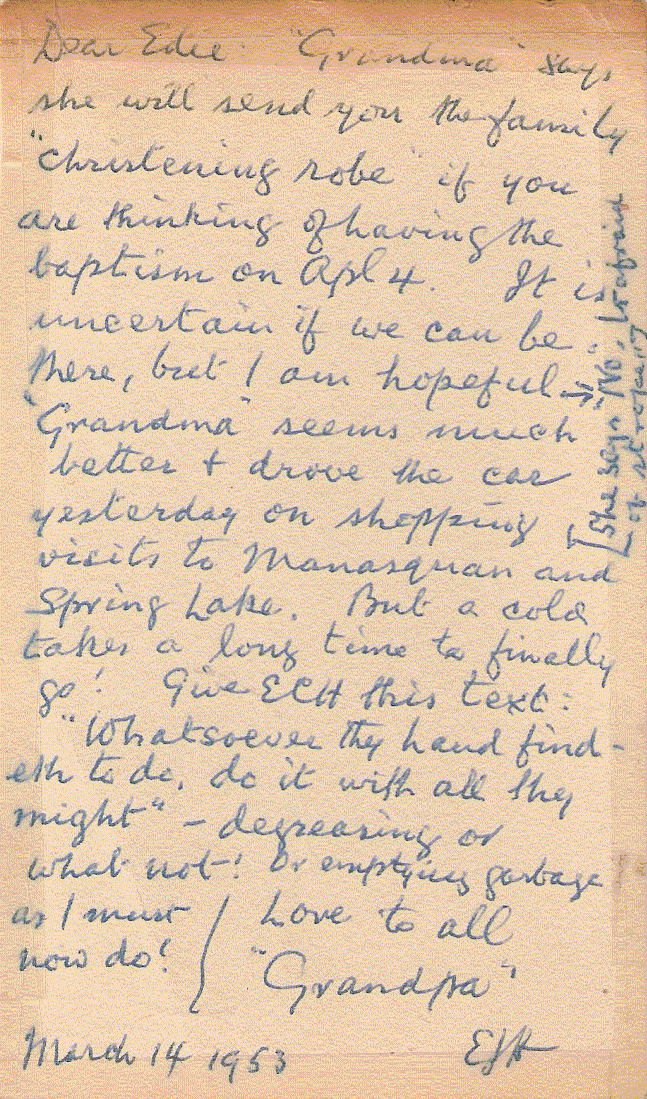 Dear Edie: "Grandma" says
she will send you the family
"christening robe" if you
are thinking of having the
baptism on Apl 4. It is
uncertain if we can be
there, but I am hopeful. →
"Grandma" seems much
better + drove the car
yesterday on shopping
visits to Manasquan and
Spring Lake. But a cold
takes a long time to finally
go! Give ECH this text:
"Whatsoever thy hand find-
eth to do, do it with all thy
might" – degreasing or
what not! Or emptying garbage
as I must
now do!
Love to all
"Grandpa"
March 14 1953
EJH
[She says "No,
of